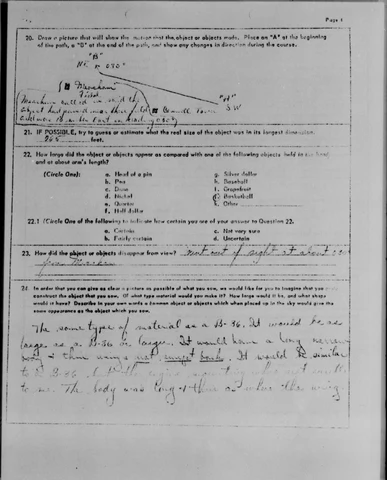 Page 4
20. Draw a picture that will show the motion that the object or objects made. Place an "A" at the beginning
of the path, a "B" at the end of the path, and show any changes in direction during the course.
"B"
NE
Marcham
Field
"A"
SW
21. IF POSSIBLE, try to guess or estimate what the real size of the object was in its longest dimension.
feet.
22. How large did the object or objects appear as compared with one of the following objects held in the hand
and at about arm's length?
(Circle One):
a. Head of a pin
b. Pea
c. Dime
d. Nickel
e. Quarter
f. Half dollar
g. Silver dollar
h. Baseball
i. Grapefruit
j. Basketball
k. Other
22.1 (Circle One of the following to indicate how certain you are of your answer to Question 22.
a. Certain
b. Fairly certain
c. Not very sure
d. Uncertain
23. How did the object or objects disappear from view? Went out of sight at about
24. In order that you can give as clear a picture as possible of what you saw, we would like for you to imagine that you could
construct the object that you saw. Of what type material would you make it? How large would it be, and what shape
would it have? Describe in your own words a common object or objects which when placed up in the sky would give the
same appearance as the object which you saw.
The same type of material as a B-36. It would be as
large as a B-36 or larger. It would have a long narrow
body & thin wing not swept back. It would be similar
to a B-36
to me. The body was long & thin as was the wing.